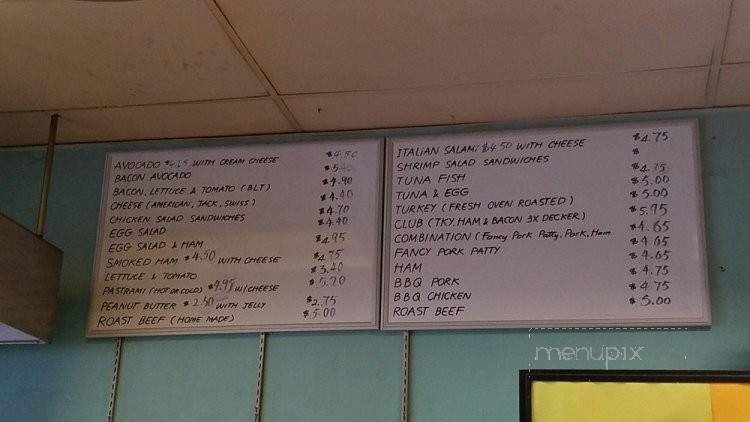 AVOCADO $4.25 WITH CREAM CHEESE $4.50
BACON AVOCADO $5.40
BACON, LETTUCE & TOMATO (BLT) $4.90
CHEESE (AMERICAN, JACK, SWISS) $4.40
CHICKEN SALAD SANDWICHES $4.70
EGG SALAD $4.40
EGG SALAD & HAM $4.95
SMOKED HAM $4.50 WITH CHEESE $4.75
LETTUCE & TOMATO $3.40
PASTRAMI (HOT OR COLD) $4.95 W/CHEESE $5.20
PEANUT BUTTER $2.50 WITH JELLY $2.75
ROAST BEEF (HOME MADE) $5.00
ITALIAN SALAMI $4.50 WITH CHEESE $4.75
SHRIMP SALAD SANDWICHES $
TUNA FISH $4.75
TUNA & EGG $5.00
TURKEY (FRESH OVEN ROASTED) $5.00
CLUB (TKY, HAM & BACON 3X DECKER) $5.75
COMBINATION (Fancy Pork Patty, Pork, Ham $4.65
FANCY PORK PATTY $4.65
HAM $4.65
BBQ PORK $4.75
BBQ CHICKEN $4.75
ROAST BEEF $5.00
menupix